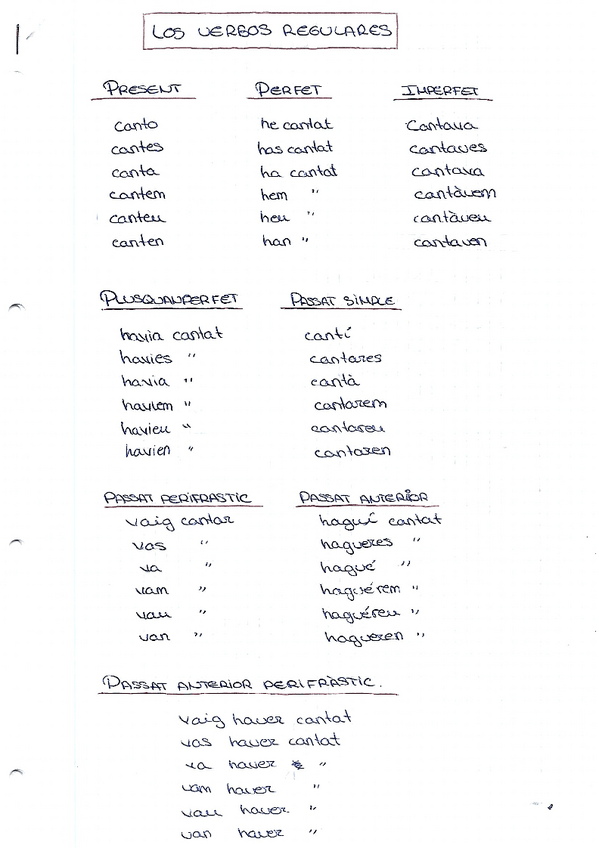 LOS VERBOS REGULARES
PRESENT
canto
cantes
canta
cantem
canteu
canten
PERFET
he cantat
has cantat
ha cantat
hem "
heu "
han "
IMPERFET
Cantava
cantaves
cantava
cantàvem
cantàveu
cantaven
PLUSQUAMPERFET
havia cantat
havies "
havia "
havíem "
havieu "
havien "
PASSAT SIMPLE
cantí
cantares
cantà
cantarem
cantareu
cantaren
PASSAT PERIFRASTIC
vaig cantar
vas "
va "
vam "
vau "
van "
PASSAT ANTERIOR
haguí cantat
hagueres "
hagué "
haguérem "
haguéreu "
hagueren "
PASSAT ANTERIOR PERIFRÀSTIC.
vaig haver cantat
vas haver cantat
va haver "
vam haver "
vau haver. "
van haver "